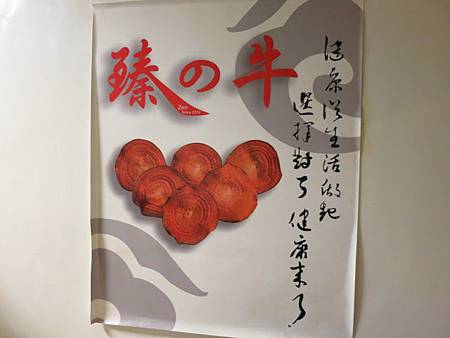 臻の牛
Zain
健康從生活做起
選擇對了健康來了